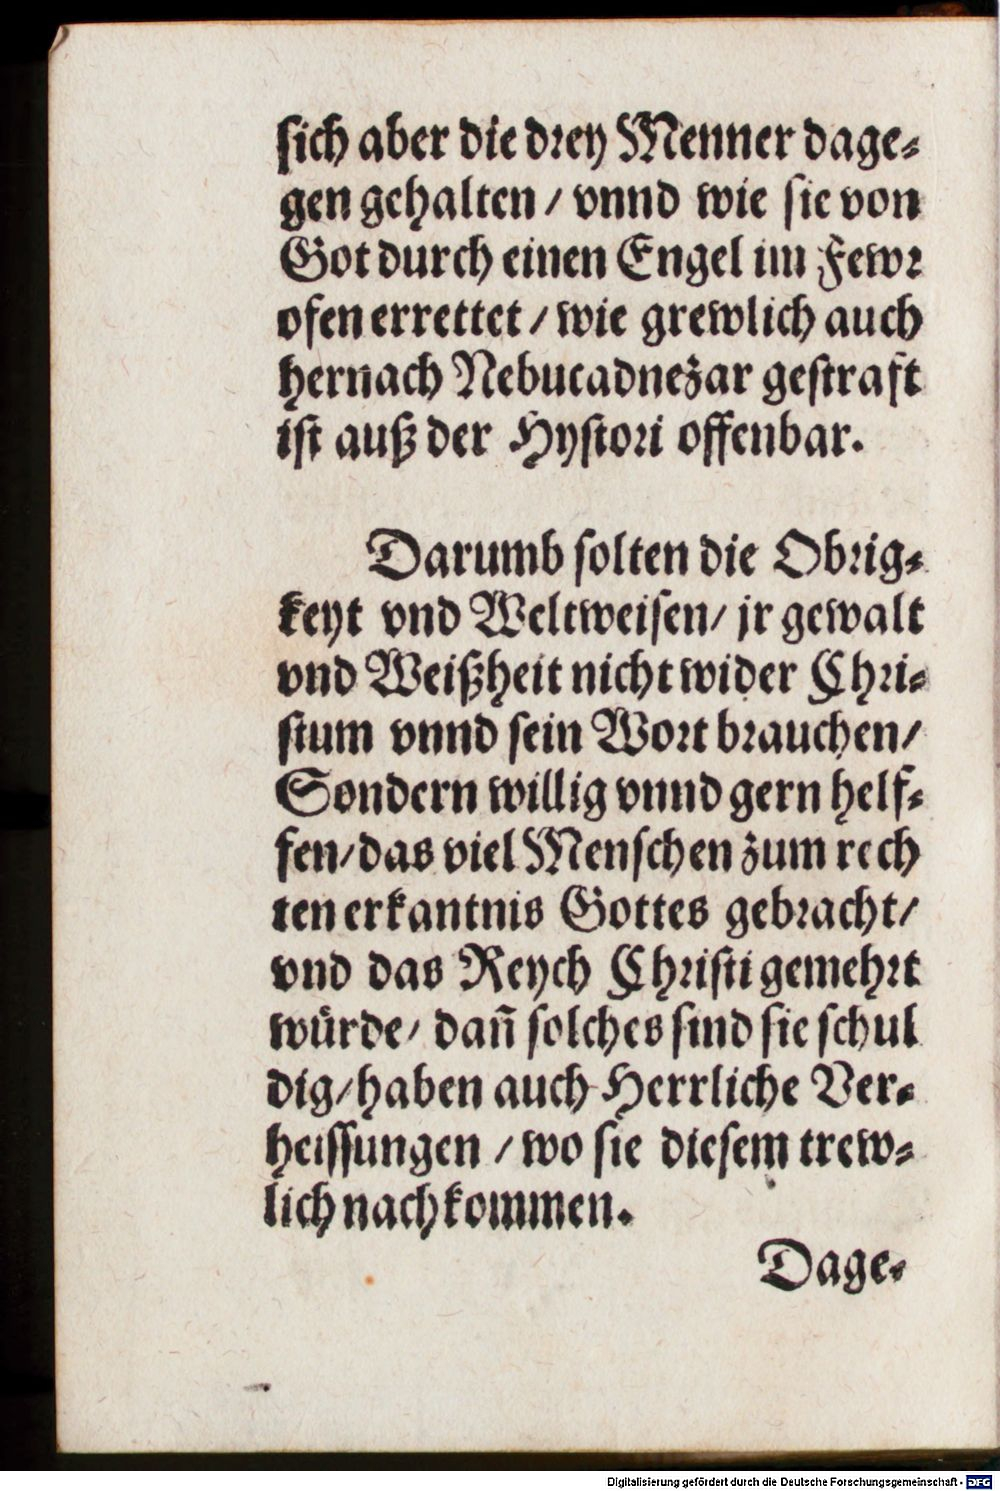 sich aber die drey Menner dage⸗
gen gehalten / vnnd wie sie von
Got durch einen Engel im Fewr
ofen errettet / wie grewlich auch
hernach Nebucadnezar gestraft
ist auß der Hystori offenbar.
Darumb solten die Obrig⸗
keyt vnd Weltweisen / jr gewalt
vnd Weißheit nicht wider Chri⸗
stum vnnd sein Wort brauchen /
Sondern willig vnnd gern helf⸗
fen / das viel Menschen zum rech
ten erkantnis Gottes gebracht /
vnd das Reych Christi gemehrt
würde / dañ solches sind sie schul
dig / haben auch Herrliche Ver⸗
heissungen / wo sie diesem trew⸗
lich nachkommen.
Dage⸗
Digitalisierung gefördert durch die Deutsche Forschungsgemeinschaft - DFG